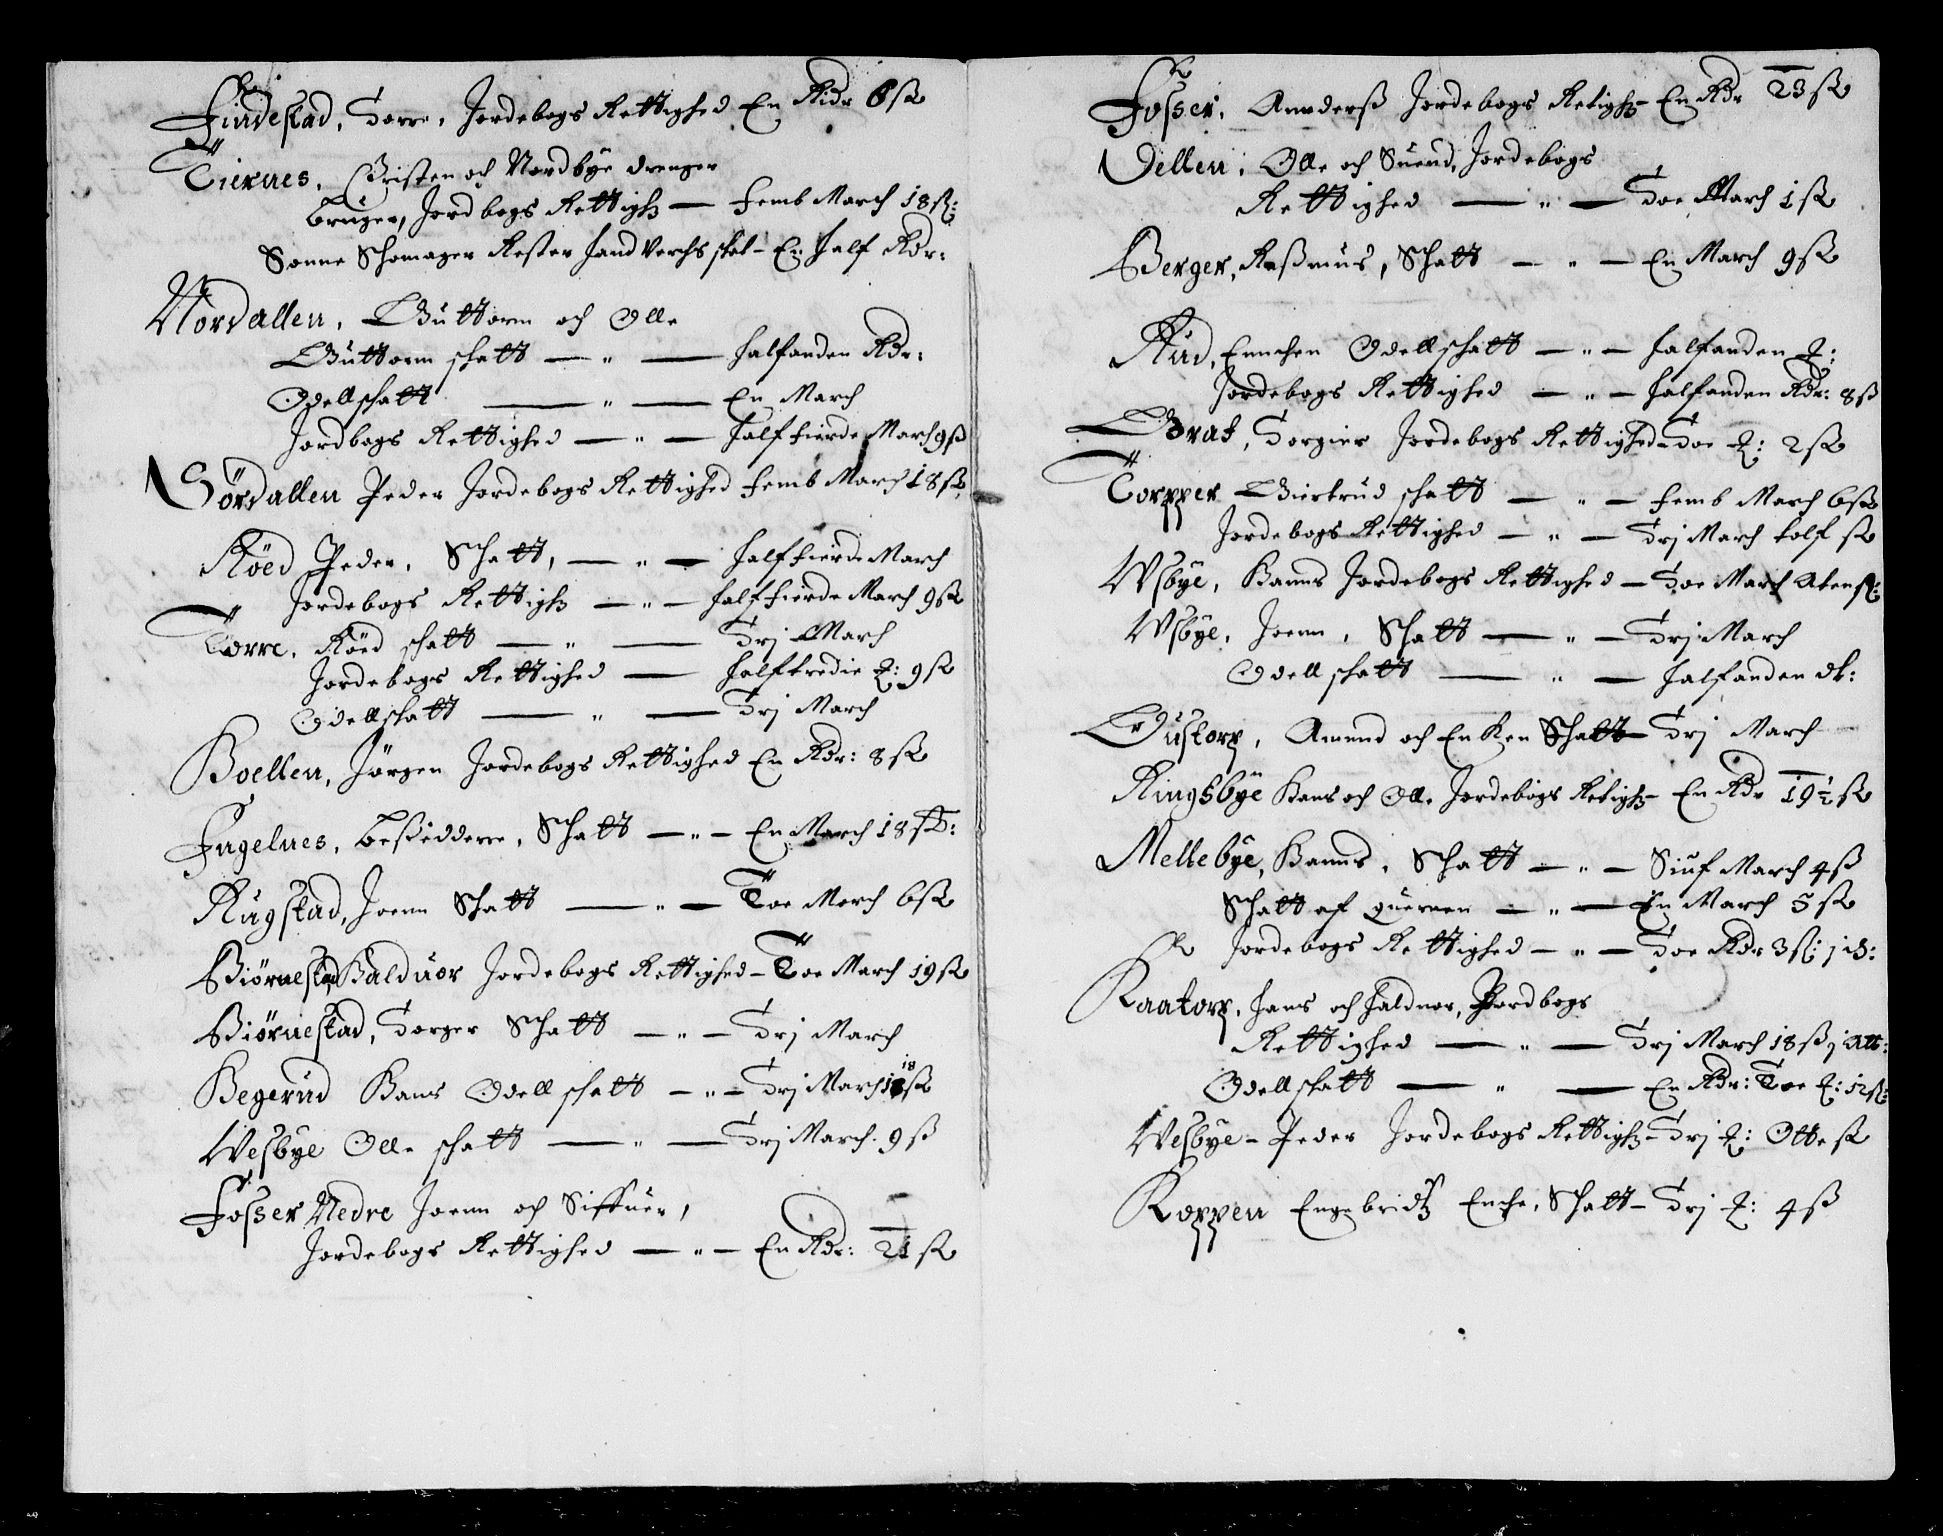 Findestad, Torre, Jordebogs Rettighed En Rdr 6 sk
Tiernes, Christen och Nordbÿe drenger
bruger, Jordbogs Rettigh – Femb March 18 sk:
Sonne Schomager Rester Handverchs skat – En Half Rdr:
Nordallen, Guttorm och Olle
Guttorm schatt — „ — Halfanden Rdr:
Odellschatt — „ — En March
Jordbogs Rettighed — „ — Half fierde March 9 ß
Sördallen Peder Jordebogs Rettighed Femb March 18 sk
Röed Peder, Schatt, — „ — Half fierde March
Jordebogs Rettigh — „ — Half fierde March 9 sk
Torre, Röed schatt — „ — Trj March
Jordebogs Rettighed — Halftredie 9 sk
Odellschatt — „ — Trj March
Boellen, Jörgen Jordebogs Rettighed En Rdr: 8 sk
Fugelnes, besidderre, Schatt — „ — En March 18 sk:
Rugstad, Joenn Schatt — „ — Toe March 6 sk
Biörnestad, Halduor Jordebogs Rettighed – Toe March 19 sk
Biörnestad, Torger Schatt — „ — Trj March
Begerud Hans Odell schatt — „ — Trj March 18 sk
Wesbÿe Olle schatt — „ — Trj March 9 ß
Fosser Nedre Joenn och Siffuer,
Jordebogs Rettighed — „ — En Rdr: 21 sk
Fosser, Annderß Jordebogs Retigh – En Rdr 23 sk
Dellen, Olle och Suend, Jordebogs
Rettighed — „ — Toe March 1 sk
Berger, Raßmus, Schatt — „ — En March 9 sk
Rud, Ennchen Odellschatt — „ — Halfanden
Jordebogs Rettighed — „ — Halfanden Rdr: 8 ß
Brat, Torgier Jordebogs Rettighed – Toe 2 sk
Torpper Giertrud schatt — „ — Femb March 6 sk
Jordebogs Rettighed — „ — Trj March tolf sk
Wsbÿe, Hanns Jordebogs Rettighed – Toe March Aten sk:
Wsbÿe, Joenn, Schatt — „ — Trj March
Odell schatt — „ — Halfanden dlr:
Gustorp, Amund och Encken Schatt – Trj March
Ringsbÿe Hans och Olle Jordebogs Retigh – En Rdr 19 ½ sk
Mellebÿe, Hanns, Schatt — „ — Siuf March 4 ß
Schatt af quernen — „ — En March 5 sk
Jordebogs Rettighed — „ — Toe Rdr 3 sk: j
Kaatorp, Hans och Halduor, Jordbogs
Rettighed — „ — Trj March 18 ß j alb:
Odellschatt — „ — En Rdr: Toe 12 sk:
Wesbÿe – Peder Jordebogs Rettigh – Trj Otte sk
Koppen Engebridtz Enche, Schatt – Trj 4 ß